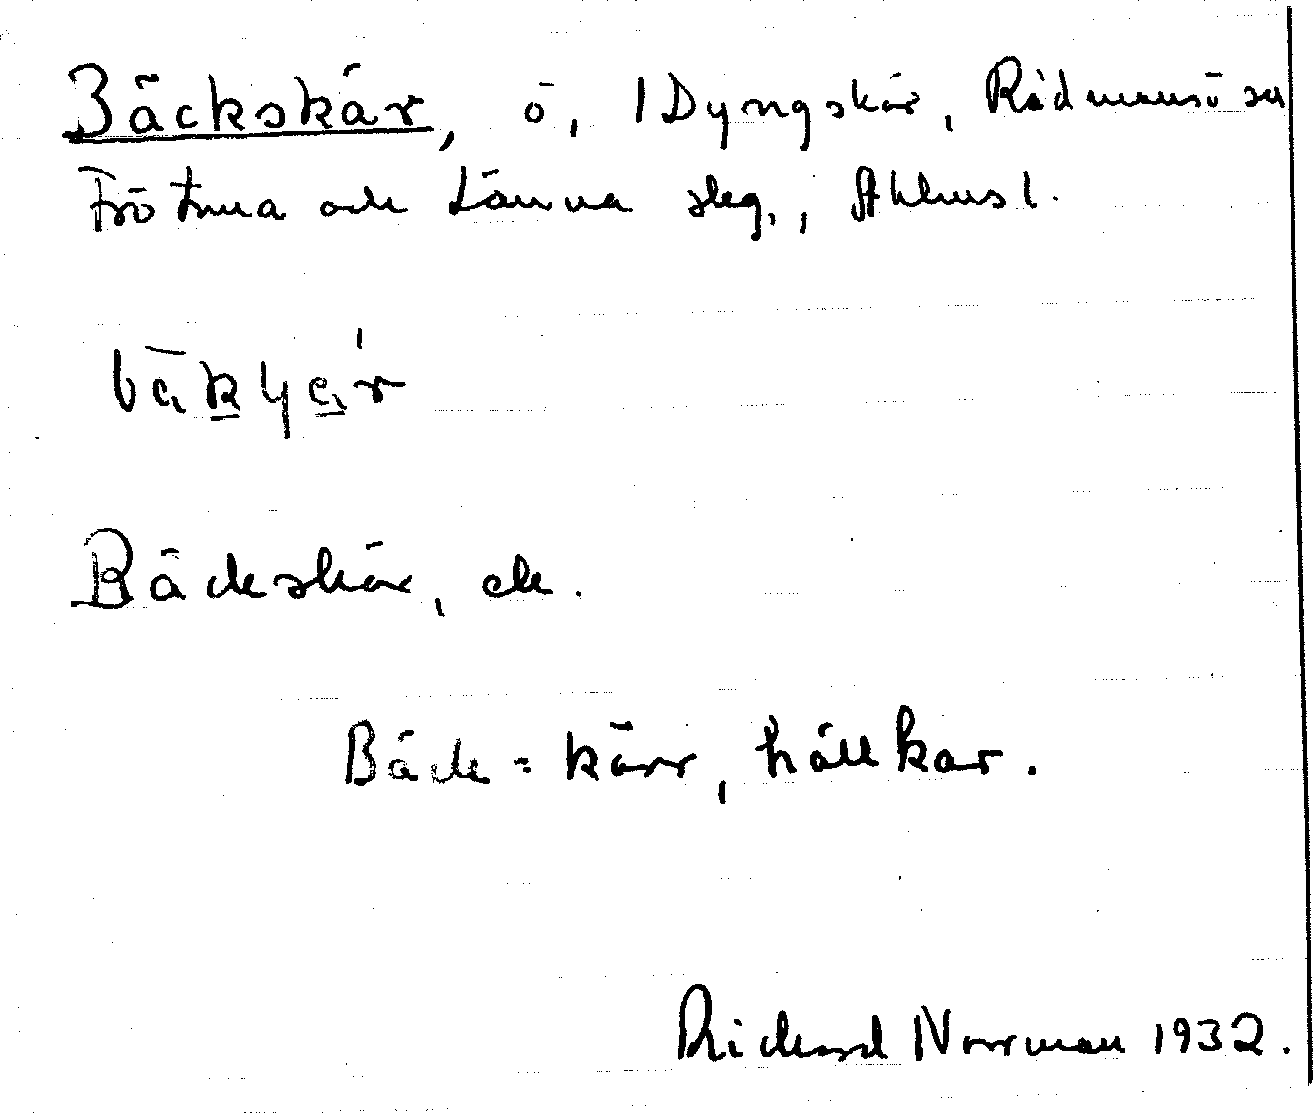 Bäckskär, ö, 1 Dyngskär, Rådmansö sn
Frötuna och Länna skg., Ahlms l.
Bäckskär, ek.
Bäck = kärr, hällkar.
Richard Norrman 1932.